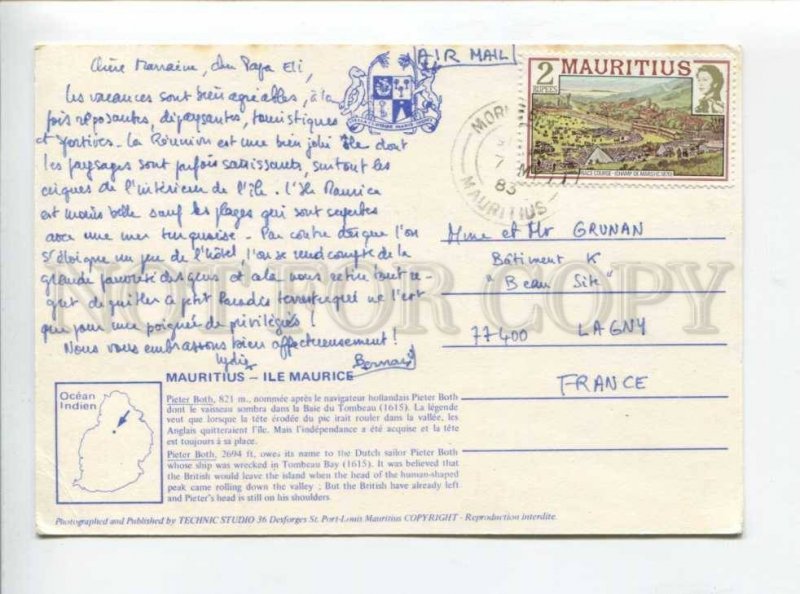 Chère Marraine, cher Papa Eli,
Les vacances sont bien agréables, à la
fois reposantes, dépaysantes, touristiques
et sportives. La Réunion est une bien jolie île dont
les paysages sont parfois saisissants, surtout les
cirques de l'intérieur de l'île. L'Ile Maurice
est moins belle sauf les plages qui sont superbes
avec une mer turquoise. Par contre dès que l'on
s'éloigne un peu de l'hôtel, l'on se rend compte de la
grande pauvreté des gens et cela nous retire tout re-
gret de quitter ce petit Paradis terrestre qui ne l'est
que pour une poignée de privilégiés !
Nous vous embrassons bien affectueusement !
Lydie Bernard
AIR MAIL
2 RUPEES
MAURITIUS
RACE COURSE - (CHAMP DE MARS) C 1870
MAURITIUS
83
Mme et Mr GRUNAN
Bâtiment K
"Beau Site"
77400 LAGNY
FRANCE
NOT FOR COPY
MAURITIUS – ILE MAURICE
Océan
Indien
Pieter Both, 821 m., nommée après le navigateur hollandais Pieter Both
dont le vaisseau sombra dans la Baie du Tombeau (1615). La légende
veut que lorsque la tête érodée du pic irait rouler dans la vallée, les
Anglais quitteraient l'île. Mais l'indépendance a été acquise et la tête
est toujours à sa place.
Pieter Both, 2694 ft, owes its name to the Dutch sailor Pieter Both
whose ship was wrecked in Tombeau Bay (1615). It was believed that
the British would leave the island when the head of the human-shaped
peak came rolling down the valley ; But the British have already left
and Pieter's head is still on his shoulders.
Photographed and Published by TECHNIC STUDIO 36 Desforges St. Port-Louis Mauritius COPYRIGHT - Reproduction interdite.